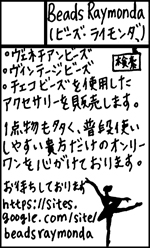 Beads Raymonda
(ビーズ・ライモンダ)
・ヴェネチアンビーズ
・ヴィンテージビーズ
・チェコビーズを使用した
アクセサリーを販売します。
1点物も多く、普段使い
しやすい貴方だけのオンリー
ワンを心がけております。
お待ちしております
https://sites.
google.com/site/
beadsraymonda